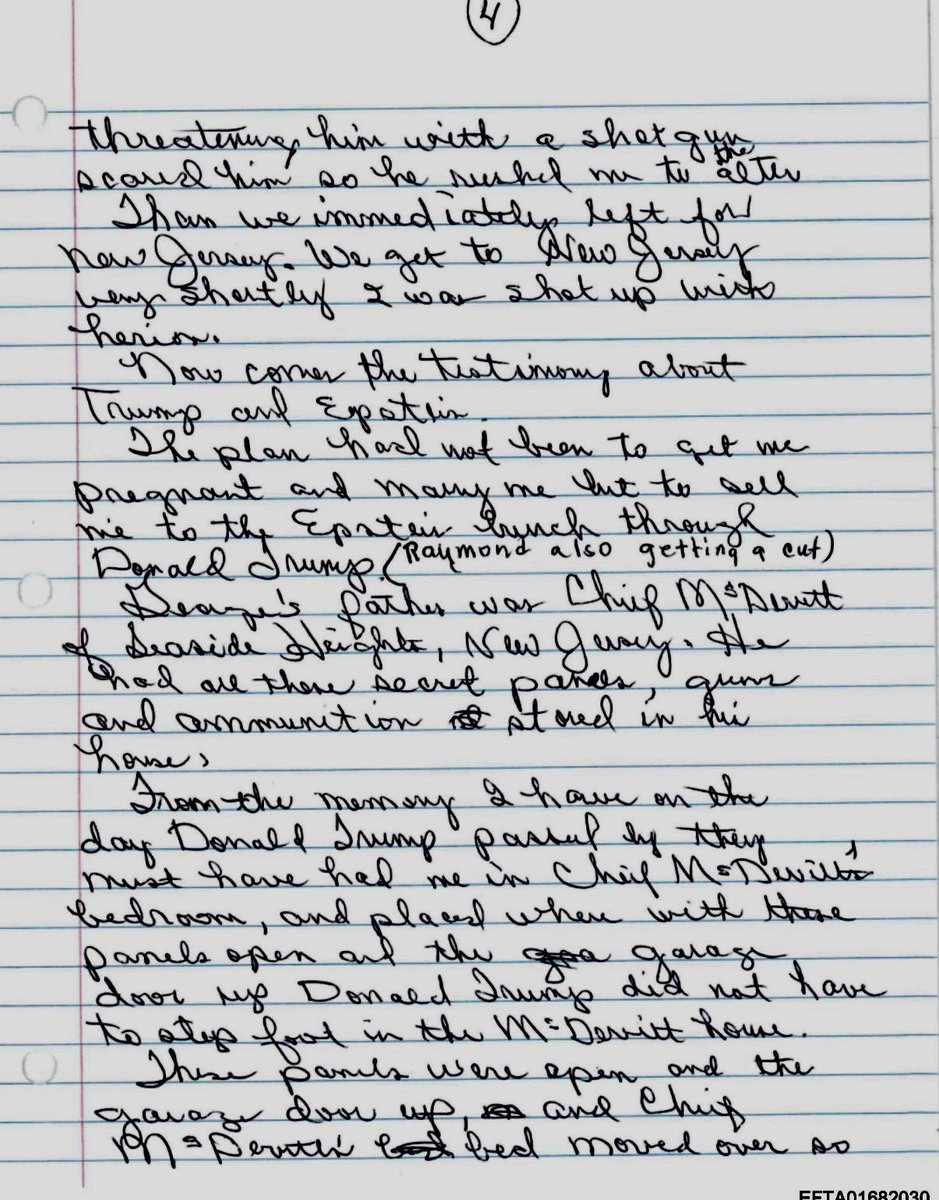 4
threatening him with a shotgun
scared him so he rushed me to the alter
Than we immediately left for
new Jersey. We get to New Jersey
very shortly I was shot up with
herion.
Now comes the testimony about
Trump and Epstein.
The plan had not been to get me
pregnant and marry me but to sell
me to the Epstein bunch through
Donald Trump. (Raymond also getting a cut)
George's father was Chief McDevitt
of Seaside Heights, New Jersey. He
had all these secret panels, guns
and ammunition stored in his
house,
From the memory I have on the
day Donald Trump passed by they
must have had me in Chief McDevitt's
bedroom, and placed where with those
panels open and the garage
door up Donald Trump did not have
to step foot in the McDevitt house.
These panels were open and the
garage door up, and Chief
McDevitt's bed moved over so
EFTA01682030